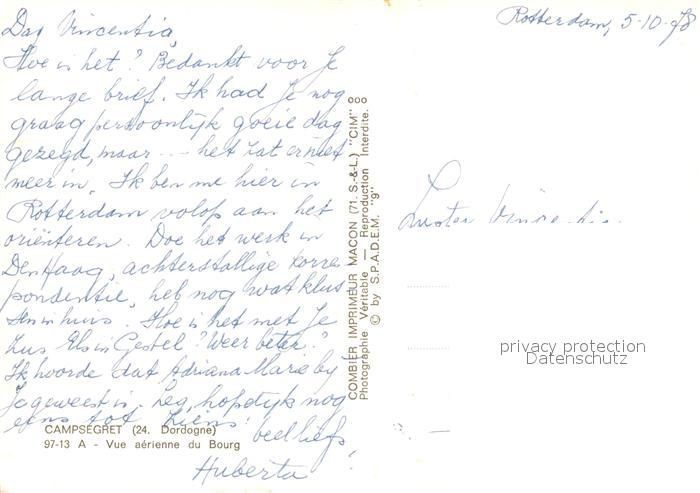 Rotterdam, 5-10-78
Dag Vincentia,
Hoe is het? Bedankt voor je
lange brief. Ik had je nog
graag persoonlijk goeie dag
gezegd, maar ... het zat er niet
meer in. Ik ben me hier in
Rotterdam volop aan het
oriënteren. Doe het werk in
Den Haag, achterstallige korres-
pondentie, heb nog wat klus
sen in huis. Hoe is het met je
zus Els in Gestel? Weer beter?
Ik hoorde dat Adriana Marie bij
je geweest is. Zeg, hopelijk nog
eens tot ziens! veel liefs
Huberta!
CAMPSEGRET (24. Dordogne)
97-13 A - Vue aérienne du Bourg
COMBIER IMPRIMEUR MACON (71. S.-&-L.) "CIM"
Photographie Véritable — Reproduction Interdite.
© by S.P.A.D.E.M. "9"
Zuster
privacy protection
Datenschutz